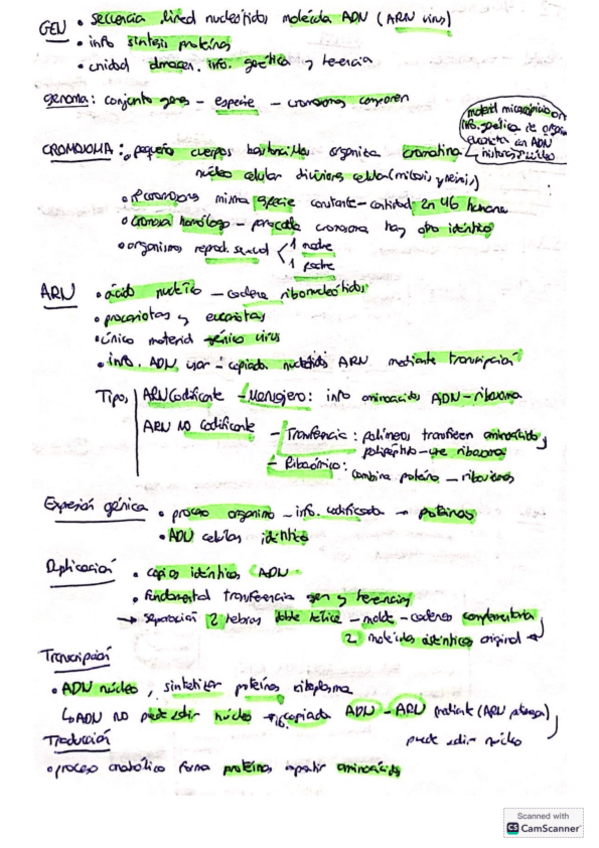 GEN • secuencia lineal nucleótidos molécula ADN (ARN virus)
• info síntesis proteínas
• unidad almacen. info. genética y herencia
genoma: conjunto genes - especie - cromosomas componen
material microscópico
info. genética de
eucariota en ADN
histonas núcleo
CROMOSOMA: • pequeños cuerpos bastoncillos organiza cromatina
núcleo celular divisiones celula (mitosis y meiosis)
• nº cromosomas misma especie constante - cantidad en 46 humana
• cromosoma homólogo - cromosoma hay otro idéntico
• organismos reprod. sexual 1 madre
1 padre
ARN • ácido nucleico - cadena ribonucleótidos
• procariotas y eucariotas
• único material génico virus
• info. ADN, usar - copiada nucleótidos ARN mediante transcripción
Tipos ARN Codificante - Mensajero: info aminoácidos ADN - ribosoma
ARN NO Codificante - Transferencia: polímeros transfieren aminoácidos
polipéptido - ribosoma
- Ribosómico: combina proteína - ribosomas
Expresión génica • proceso organismo - info. codificada → proteínas
• ADN celulas idéntico
Duplicación • copias idénticas ADN
• fundamental transferencia gen y herencias
→ separación 2 hebras doble hélice - molde - cadenas complementaria
2 moléculas original
Transcripción
• ADN núcleo, sintetizar proteínas citoplasma
↳ ADN NO puede salir núcleo → copiada ADN - ARN mediante (ARN
puede salir núcleo
Traducción
• proceso anabólico forma proteínas aminoácidos
Scanned with
CS CamScanner